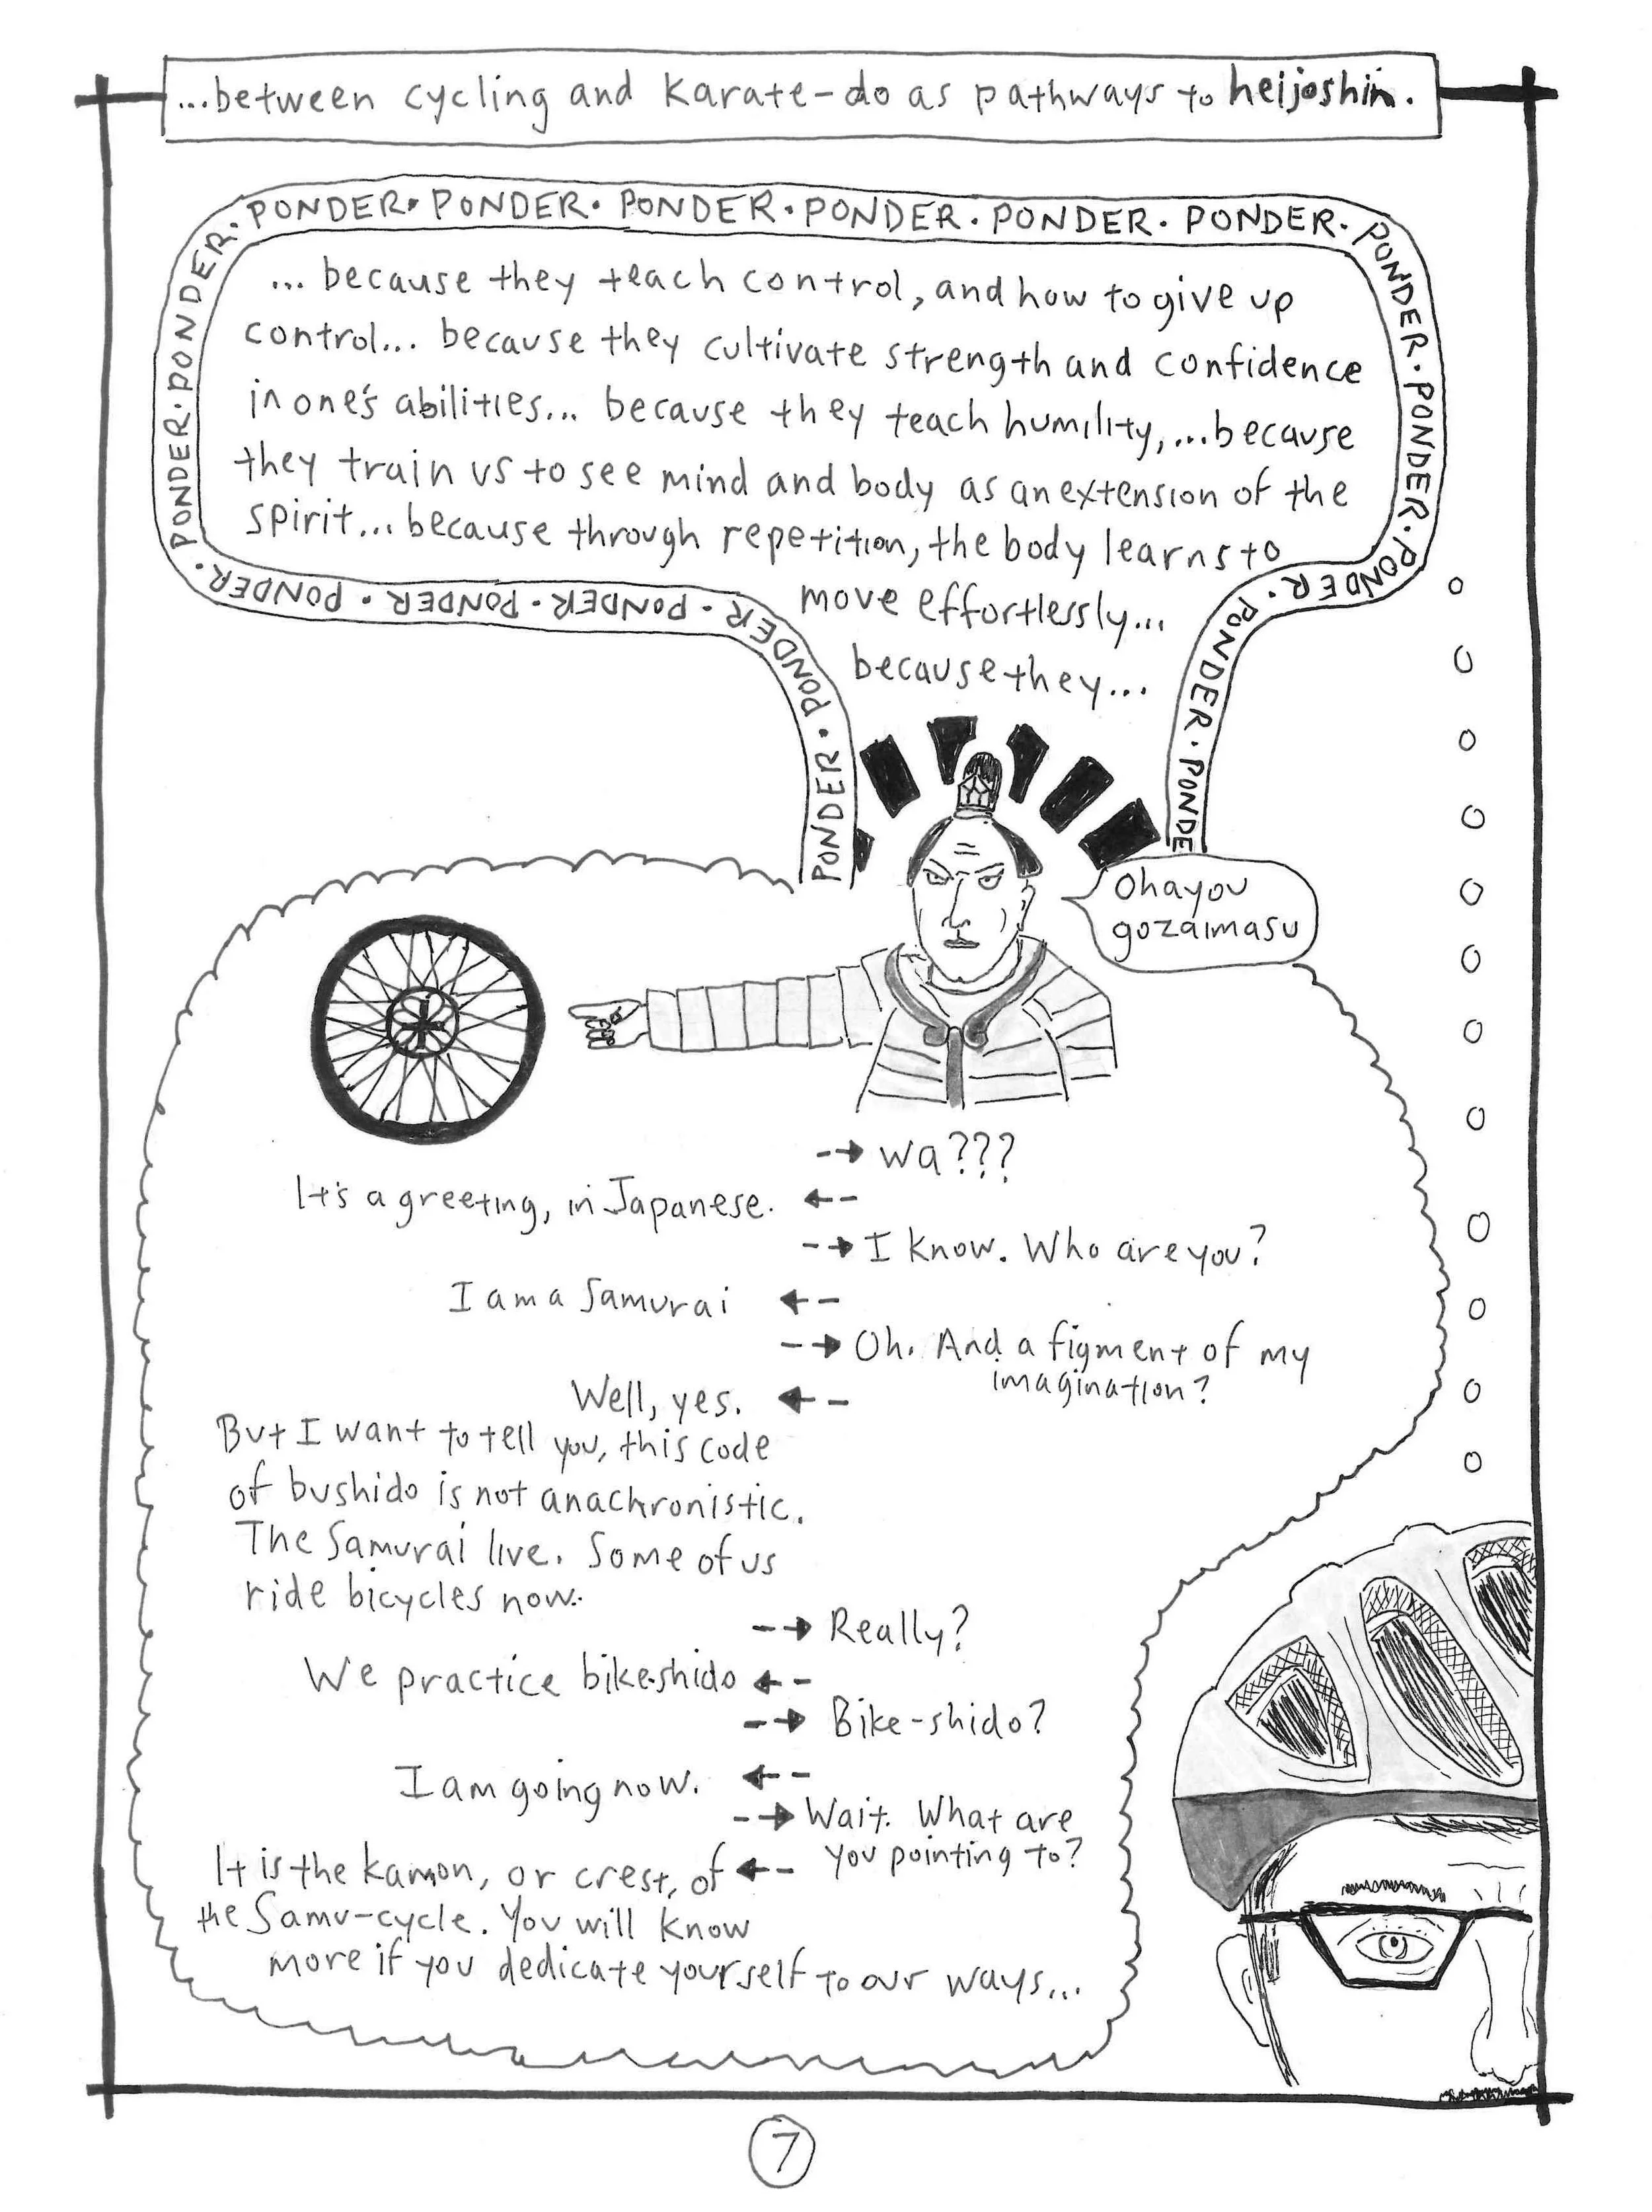 ...between cycling and karate-do as pathways to heijoshin.
PONDER · PONDER · PONDER · PONDER · PONDER · PONDER · PONDER · PONDER · PONDER · PONDER · PONDER · PONDER · PONDER · PONDE
PONDER · PONDER · PONDER · PONDER · PONDER · PONDER · PONDER · PONDER · PONDER
... because they teach control, and how to give up
control... because they cultivate strength and confidence
in one's abilities... because they teach humility,...because
they train us to see mind and body as an extension of the
spirit... because through repetition, the body learns to
move effortlessly...
because they...
Ohayou
gozaimasu
Wa???
It's a greeting, in Japanese.
I know. Who are you?
I am a Samurai
Oh. And a figment of my
imagination?
Well, yes.
But I want to tell you, this code
of bushido is not anachronistic.
The Samurai live. Some of us
ride bicycles now.
Really?
We practice bike-shido
Bike-shido?
I am going now.
Wait. What are
you pointing to?
It is the kamon, or crest, of
the Samu-cycle. You will know
more if you dedicate yourself to our ways...
7